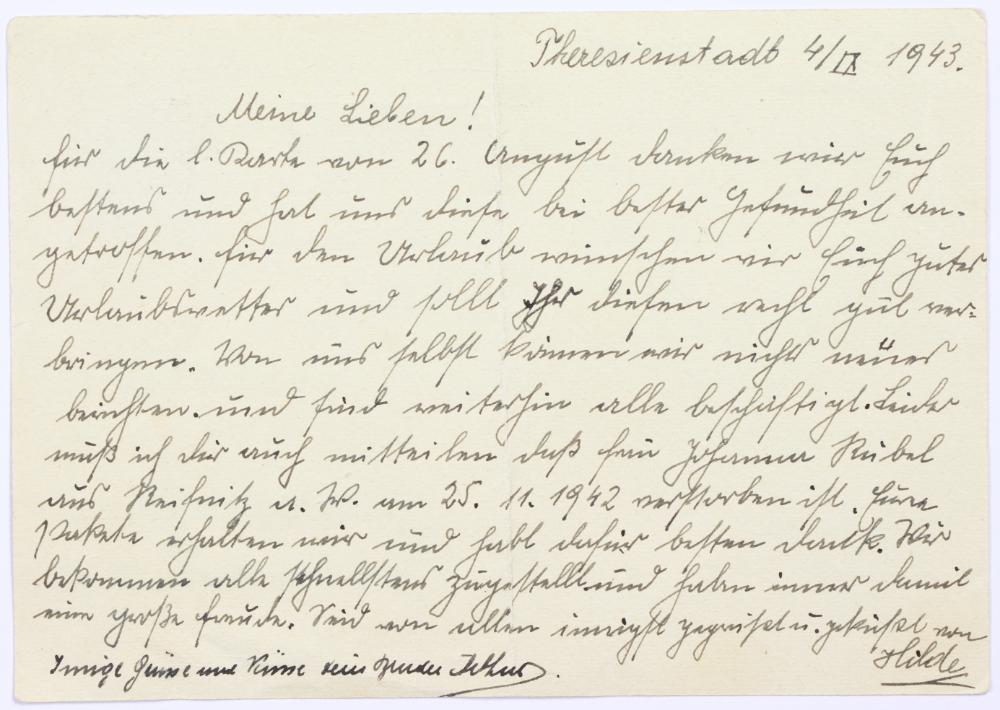 Theresienstadt 4/IX 1943.
Meine Lieben!
für die l. Karte von 26. August danken wir Euch
bestens und hat uns diese bei bester Gesundheit an-
getroffen. für den Urlaub wünschen wir Euch gutes
Urlaubswetter und sollt Ihr diesen recht gut ver-
bringen. Von uns selbst können wir nichts neues
berichten. und sind weiterhin alle beschäftigt. Leider
muß ich dir auch mitteilen daß frau Johanna Kübel
aus Reifnitz a. W. am 25. 11. 1942 verstorben ist. Eure
Pakete erhalten wir und habt dafür besten dank. Wir
bekommen alle schnellstens zugestellt und haben immer damit
eine große freude. Seid von allen innigst gegrüßt u. geküßt von
Hilde
Innige Grüsse und Küsse dein Bruder